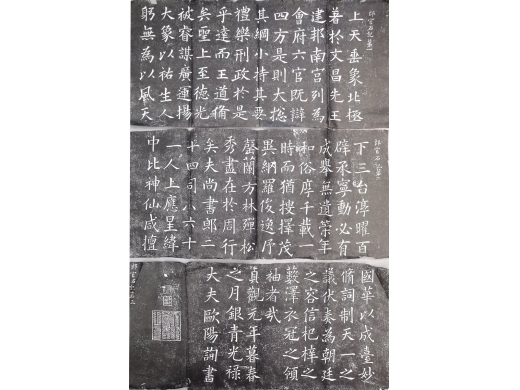 郎官石記 第一
上天垂象北極
著於文昌先王
建邦南宮列為
會府六官既辯
四方是則大摠
其綱小持其要
禮樂刑政於是
乎達而王道脩
矣聖上至德光
被睿謀廣運揚
大象以祐生人
躬無為以風天
郎官石
下三台淳曜百
辟承寧動必有
成舉無遺年
和俗厚千載一
時而猶搜擇茂
異納羅俊逸序
罄蘭方林殫松
秀盡在於周行
矣夫尚書郎二
十四司八六十
一人上應星緯
中比神仙咸擅
國華以成臺妙
脩詞制天一之
議伏奏為朝廷
之容信杞梓之
藪澤衣冠之領
袖者哉
貞觀元年暮春
之月銀青光祿
大夫歐陽詢書
郎官石記